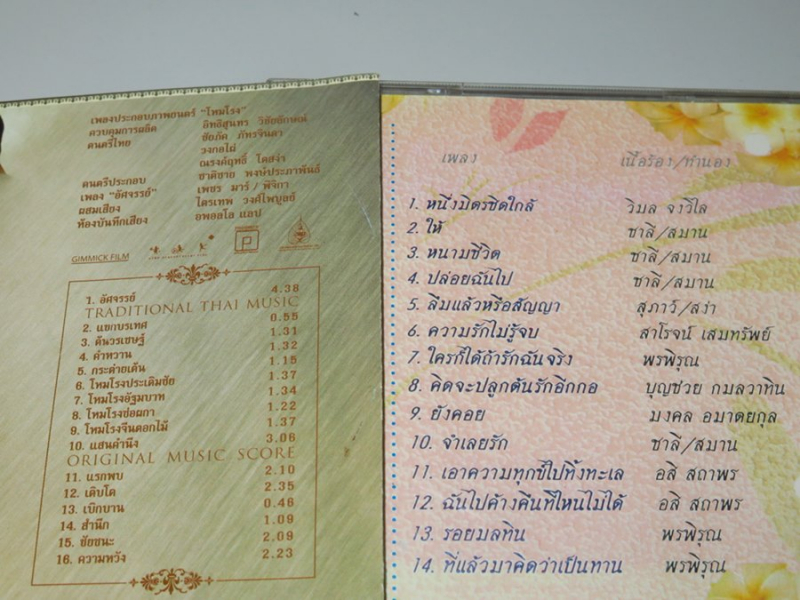 เพลงประกอบภาพยนตร์ "โหมโรง"
ควบคุมการผลิต อิทธิสุนทร วิชัยลักษณ์
ดนตรีไทย ชัยภัค ภัทรจินดา
วงกอไผ่
ณรงค์ฤทธิ์ โตสง่า
ดนตรีประกอบ ชาติชาย พงษ์ประภาพันธ์
เพลง "อัศจรรย์" เพชร มาร์ / พิจิกา
ผสมเสียง ไตรเทพ วงศ์ไพบูลย์
ห้องบันทึกเสียง
GIMMICK FILM
1. อัศจรรย์ 4.38
TRADITIONAL THAI MUSIC
2. แขกบรเทศ 0.55
3. ต้นวรเชษฐ์ 1.31
4. คำหวาน 1.32
5. กระต่ายเต้น 1.15
6. โหมโรงประเดิมชัย 1.37
7. โหมโรงอัฐมบาท 1.34
8. โหมโรงช่อผกา 1.22
9. โหมโรงจีนดอกไม้ 1.37
10. แสนคำนึง 3.06
ORIGINAL MUSIC SCORE
11. แรกพบ 2.10
12. เติบโต 2.35
13. เบิกบาน 0.46
14. สำนึก 1.09
15. ชัยชนะ 2.09
16. ความหวัง 2.23
เพลง เนื้อร้อง/ทำนอง
1. หนึ่งมิตรชิดใกล้ วิมล จงวิไล
2. ให้ ชาลี/สมาน
3. หนามชีวิต ชาลี/สมาน
4. ปล่อยฉันไป ชาลี/สมาน
5. ลืมแล้วหรือสัญญา สุภาว์/สง่า
6. ความรักไม่รู้จบ สาโรจน์ เสมทรัพย์
7. ใครก็ได้ถ้ารักฉันจริง พรพิรุณ
8. คิดจะปลูกต้นรักอีกกอ บุญช่วย กมลวาทิน
9. ยังคอย มงคล อมาตยกุล
10. จำเลยรัก ชาลี/สมาน
11. เอาความทุกข์ไปทิ้งทะเล อสิ สถาพร
12. ฉันไปค้างคืนที่ไหนไม่ได้ อสิ สถาพร
13. รอยมลทิน พรพิรุณ
14. ที่แล้วมาคิดว่าเป็นทาน พรพิรุณ